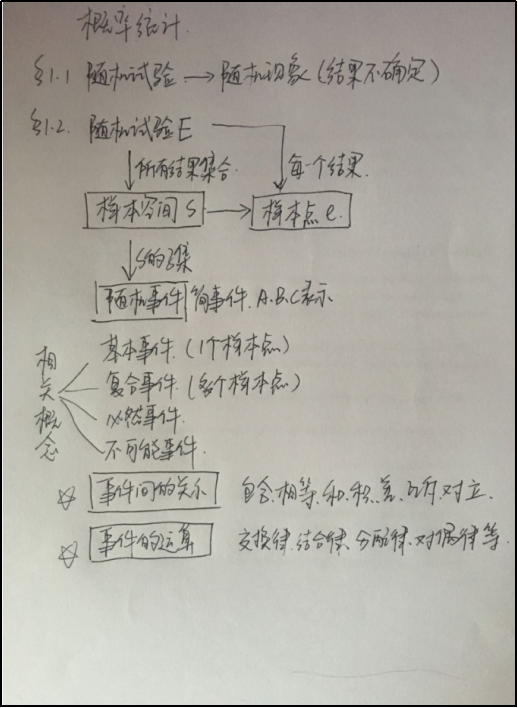 概率统计.
§1.1 随机试验→随机现象(结果不确定)
§1.2. 随机试验E
所有结果集合. 每一个结果.
样本空间S → 样本点e.
S的子集
随机事件 简事件.A.B.C表示
相关概念
基本事件.(1个样本点)
复合事件.(多个样本点)
必然事件.
不可能事件.
☆ 事件间的关系 包含.相等.和.积.差.互斥.对立.
☆ 事件的运算 交换律.结合律.分配律.对偶律等.